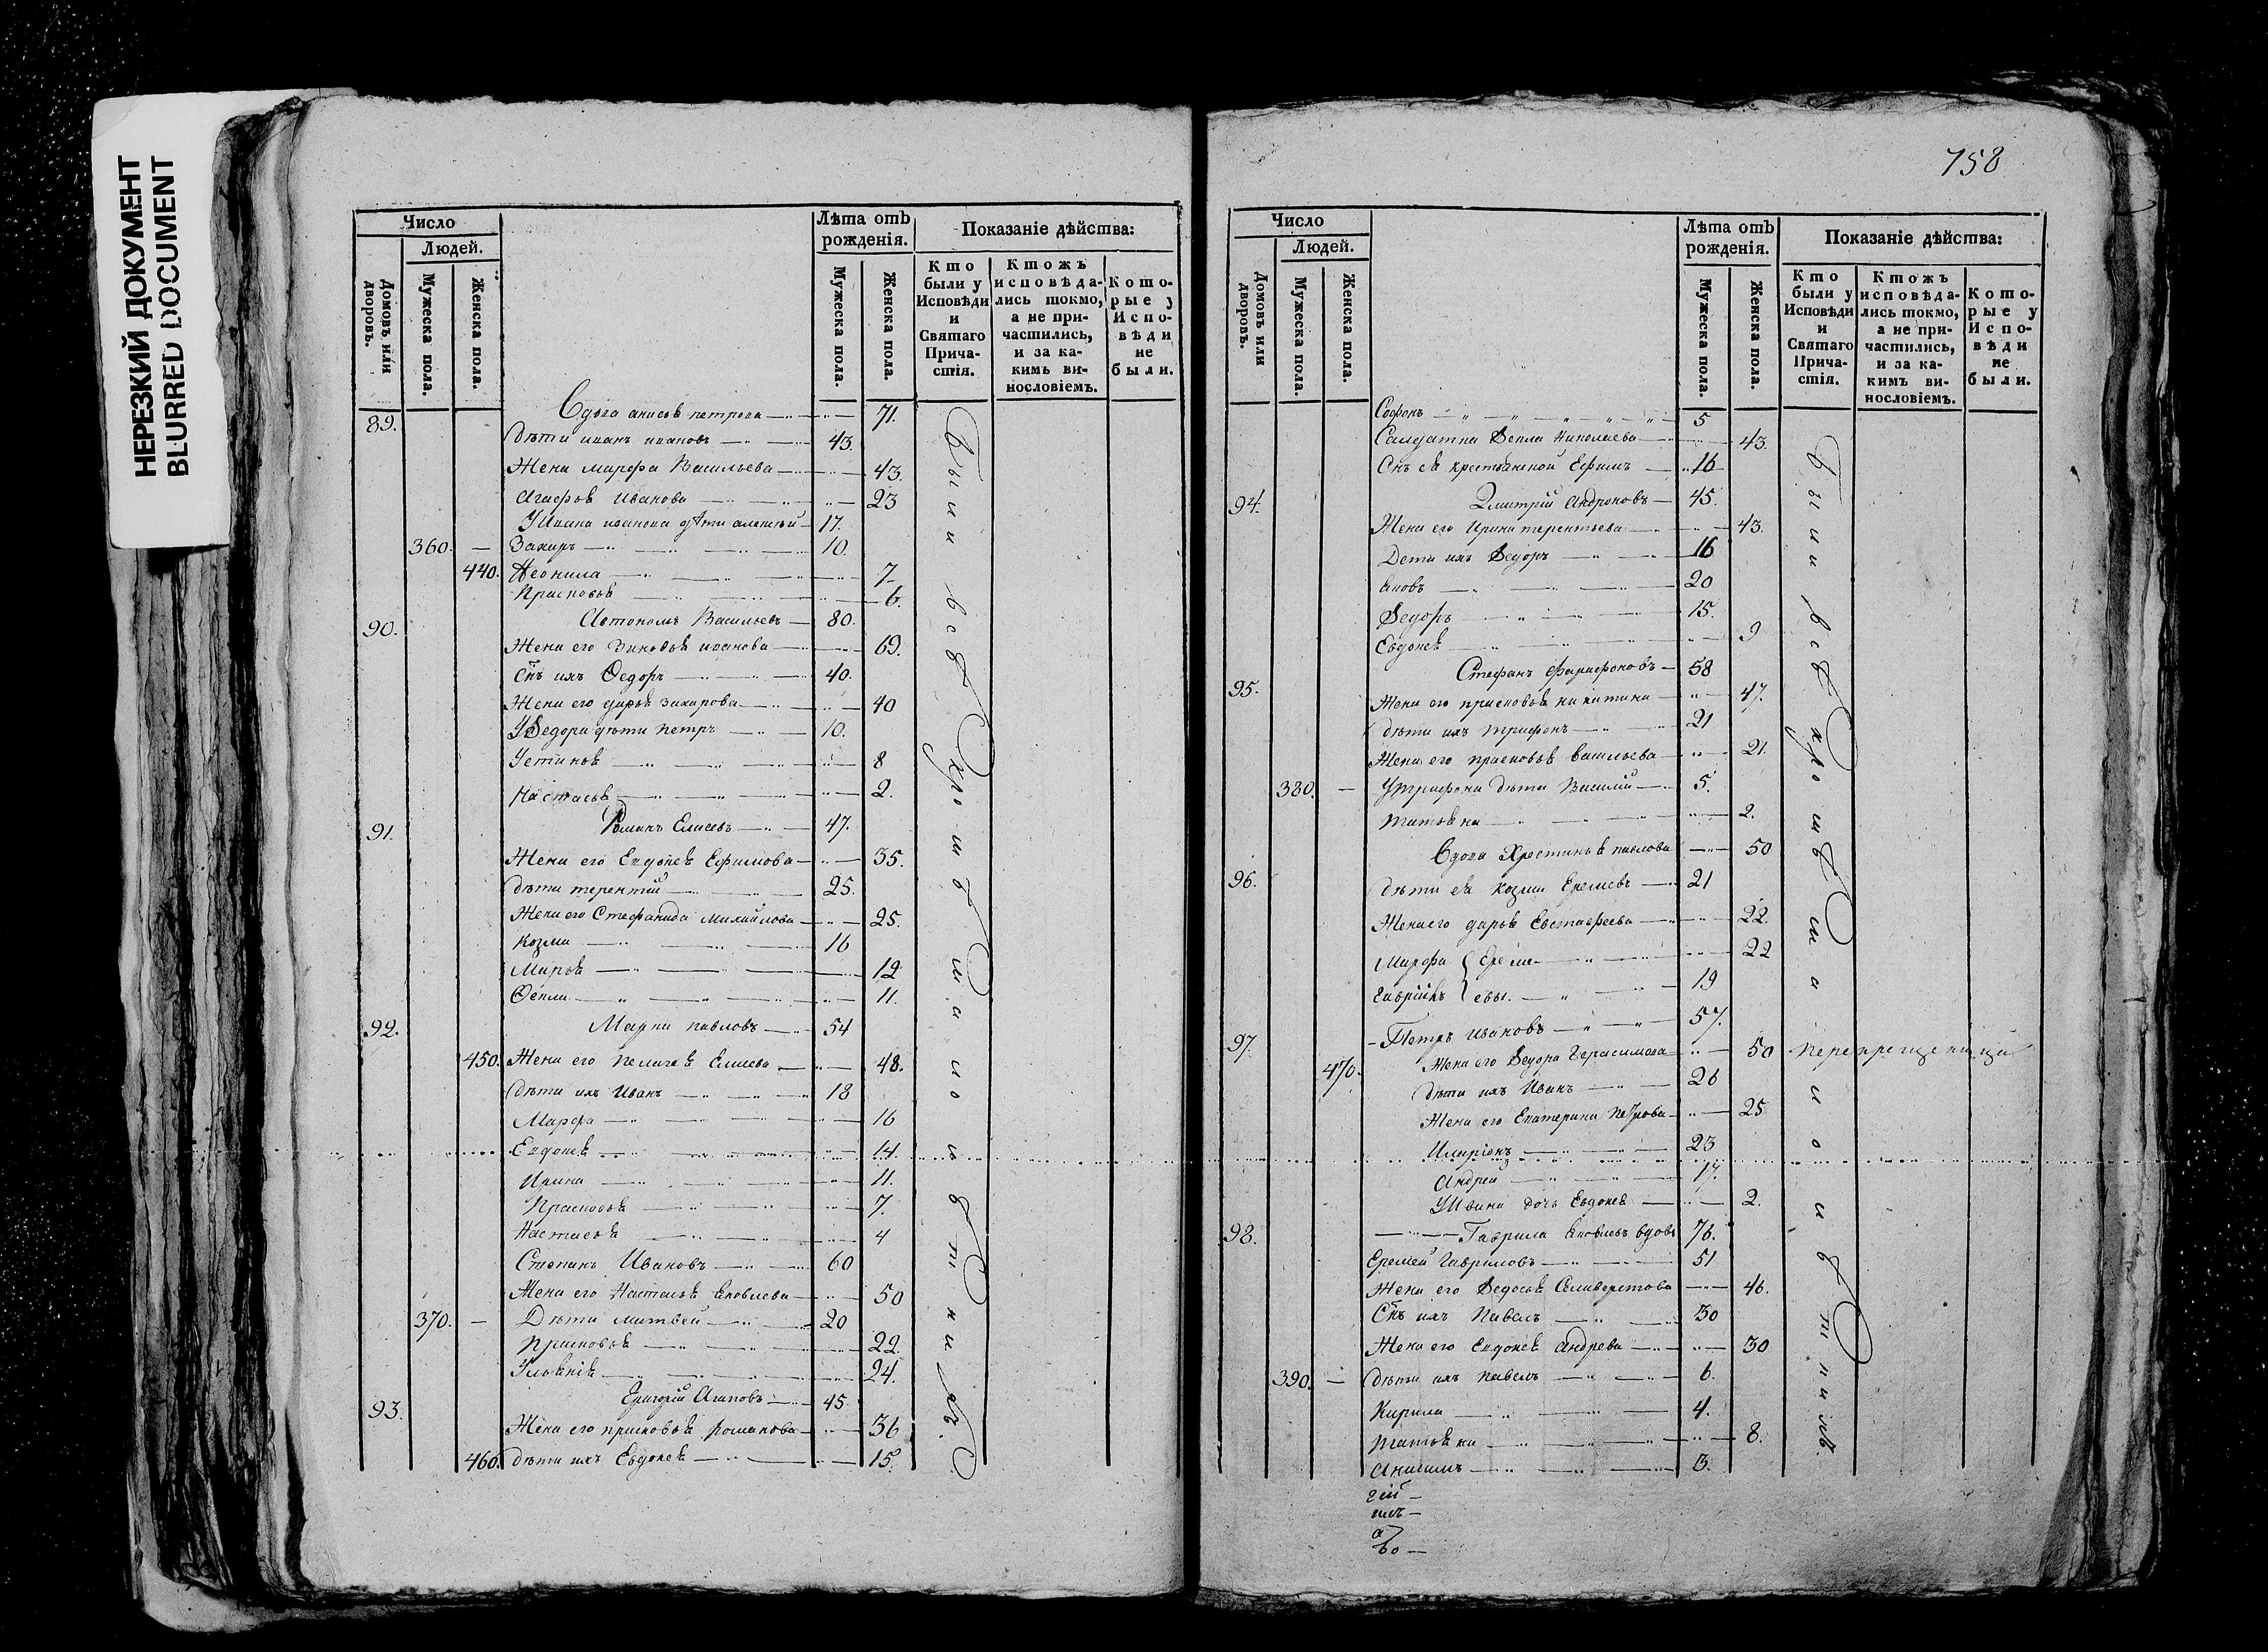 НЕРЕЗКИЙ ДОКУМЕНТ
BLURRED DOCUMENT
Число
Людей.
Домовъ или дворовъ.
Мужеска пола.
Женска пола.
Лѣта отъ рожденія.
Мужеска пола.
Женска пола.
Показаніе дѣйства:
Кто были у Исповѣди и Святаго Причастія.
Ктожъ исповѣдались токмо, а не причастились, и за какимъ винословіемъ.
Которые у Исповѣди не были.
89. Вдова анисья петрова 71.
Дѣти иванъ ивановъ 43.
Жена марфа Васильева 43.
Агафья Иванова 23
У Ивана иванова дѣти алексѣй 17.
360. — Захаръ 10.
440. Неонила 7
Прасковья 6.
90. Автономъ Васильевъ 80.
Жена его Зиновья иванова 69.
Снъ ихъ Ѳедоръ 40.
Жена его дарья захарова 40
У Ѳедора дѣти петръ 10.
Устинья 8
Настасья 2.
91. Романъ Елисевъ 47.
Жена его Евдокея Ефимова 35.
Дѣти терентій 25.
Жена его Стефанида михайлова 25.
Козма 16
Марья 12
Ѳекла 11.
92. Марки павловъ 54
450. Жена его пелагея Елисева 48.
Дѣти ихъ Иванъ 18
Марфа 16
Евдокея 14.
Ирина 11.
Прасковья 7.
Настасья 4
Степанъ Ивановъ 60
Жена его Настасья яковлева 50
370. — Дѣти матвей 20
Прасковья 22.
Ульянія 24.
93. Григорій Агаповъ 45
Жена его прасковья романова 36
460. Дѣти ихъ Евдокея 15.
Были всѣ
кромѣ
малолѣтнихъ.
758
Число
Людей.
Домовъ или дворовъ.
Мужеска пола.
Женска пола.
Лѣта отъ рожденія.
Мужеска пола.
Женска пола.
Показаніе дѣйства:
Кто были у Исповѣди и Святаго Причастія.
Ктожъ исповѣдались токмо, а не причастились, и за какимъ винословіемъ.
Которые у Исповѣди не были.
Софонъ 5
Салдатка Ѳекла Николаева 43.
Снъ ея крестьянской Ефимъ 16
94. Дмитрій Андроновъ 45.
Жена его Ирина терентьева 43.
Дети ихъ Ѳедоръ 16
яковъ 20
Ѳедоръ 15.
Евдокея 9
95. Стефанъ 58
Жена его прасковья никитина 47.
Дѣти ихъ трифонъ 21
Жена его прасковья васильева 21.
380. — У трифона дѣти Василій 5.
татьяна 2.
96. Вдова Хрестинья павлова 50
Дѣти ея козма Еремевъ 21
Жена его дарья Евстафеева 22.
Марфа 22
19
97. Петръ Ивановъ 57.
470. Жена его Ѳедора Герасимова 50 перекрещеница
Дѣти ихъ Иванъ 26
Жена его Екатерина петрова 25
Иларіонъ 23
Андрей 17.
У Ивана дочь Евдокея 2.
98. Гаврила яковлевъ вдовъ 76.
Еремей Гавриловъ 51
Жена его Ѳедосья Селиверстова 46.
Снъ ихъ Павелъ 30
Жена его Евдокея Андрева 30
390. — Дѣти ихъ павелъ 6.
Кирила 4.
татьяна 8.
3.
Были всѣ
кромѣ
малолѣтнихъ.